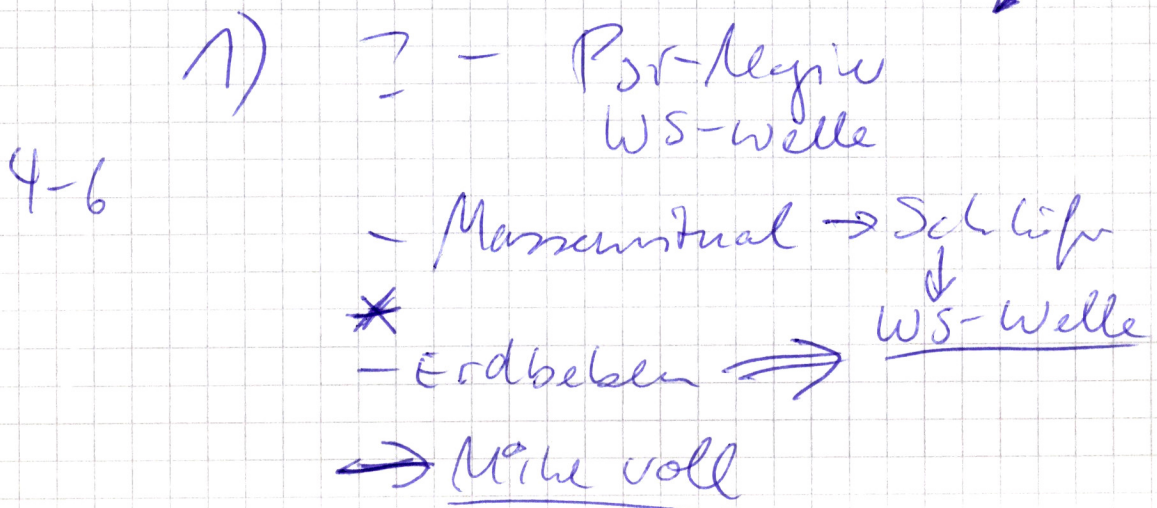 1) ? - Psr-Magie
WS-Welle
4-6
- Massenritual → Schläfer
↓
* WS-Welle
- Erdbeben ⇒
→ voll